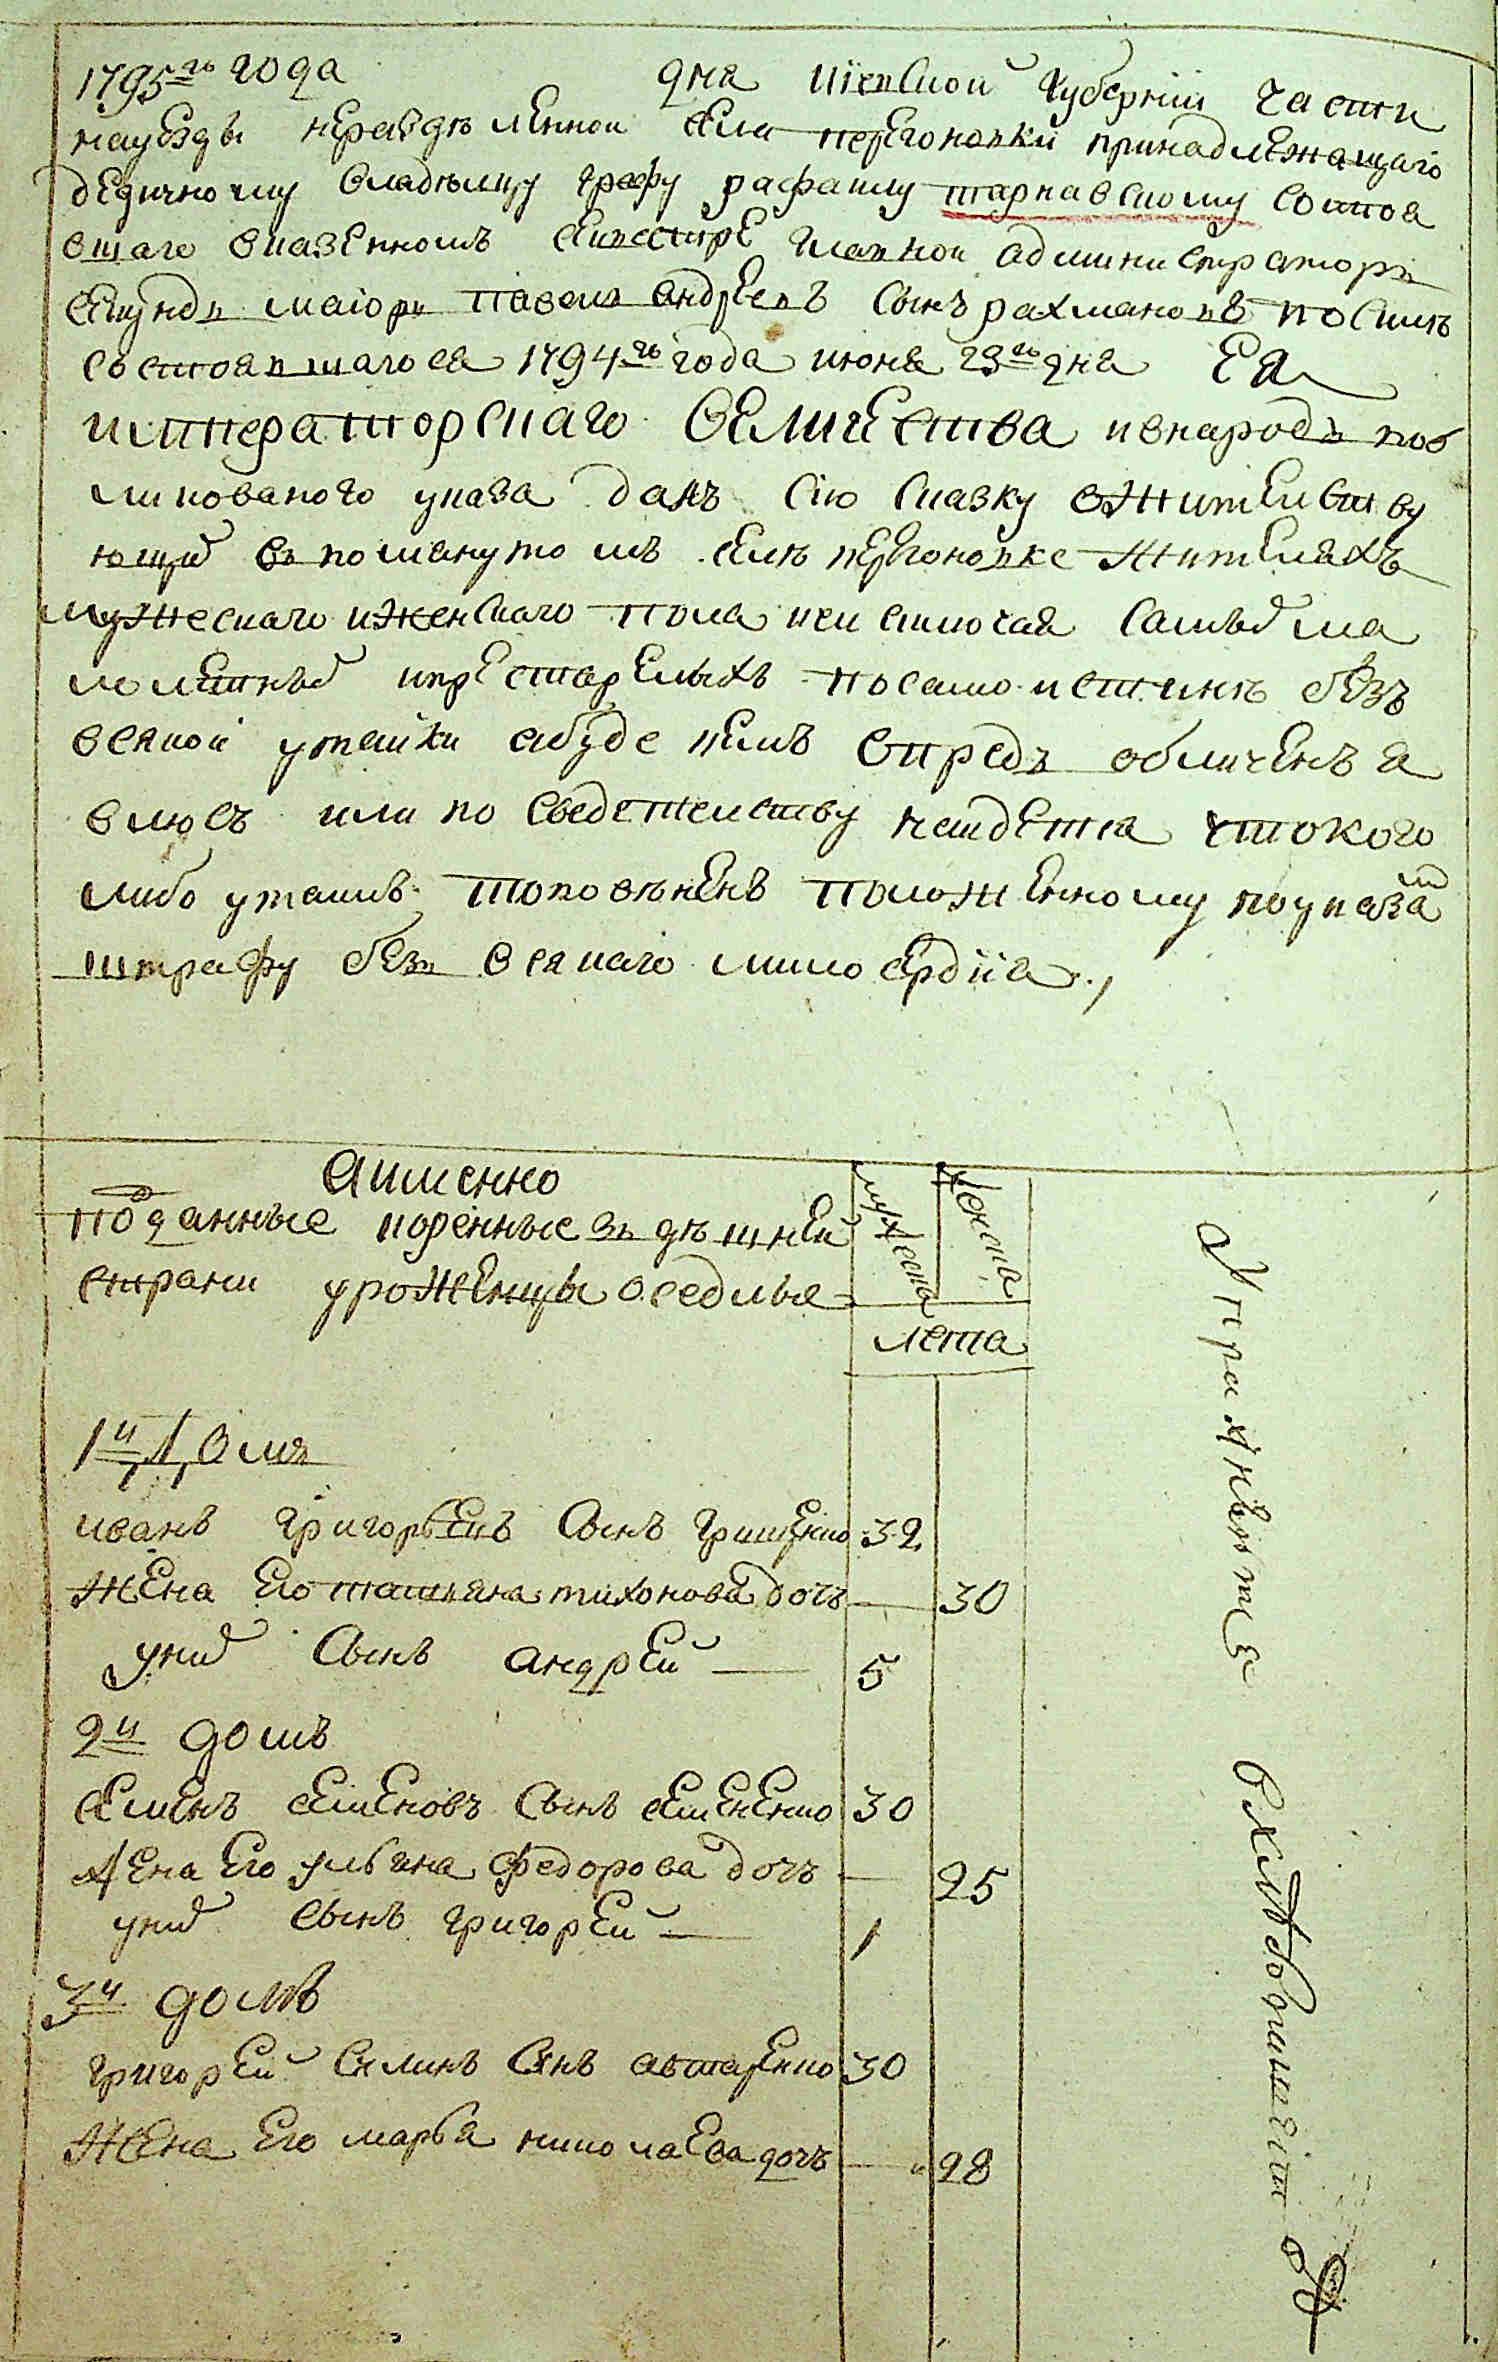 1795го года дня киевской губернии части
науезды неразделенной села перегоновки принадлежащаго
дедичному владельцу графу рафаилу тарнавскому состоя
вшаго вказенномъ секвестре главной администраторъ
секундъ маiоръ павелъ андреевъ сынъ рахмановъ посиле
состоявшагося 1794го года июня 23го дня Ея
императорскаго величества ивнародъ пуб
ликованого указа далъ сiю сказку ожительству
ющихъ въ помянутомъ селе перегоновке жителяхъ
мужескаго иженскаго пола неисключая самыхъ ма
лолетныхъ ипрестарелыхъ посамой истинне безъ
всякой утайки абуде кемъ впредь обличенъ я
влюсь или по сведетельству найдется чтокого
либо утаилъ топовиненъ положенному поуказамъ
штрафу безъ всякаго милосердiя
а именно
подданные коренные здешней
страни уроженцы оседлые
мужеска
женска
лета
1й домъ
иванъ григорьевъ сынъ грищенко 32
жена его татьяна тихонова дочь — 30
унихъ сынъ андрей — 5
2й домъ
семенъ семеновъ сынъ семененко 30
жена его ульяна федорова дочь — 25
унихъ сынъ григорей — 1
3й домъ
григорей силинъ сынъ автаренко 30
жена его марья николаева дочь — 28
Упражняются
вхлебопашестве